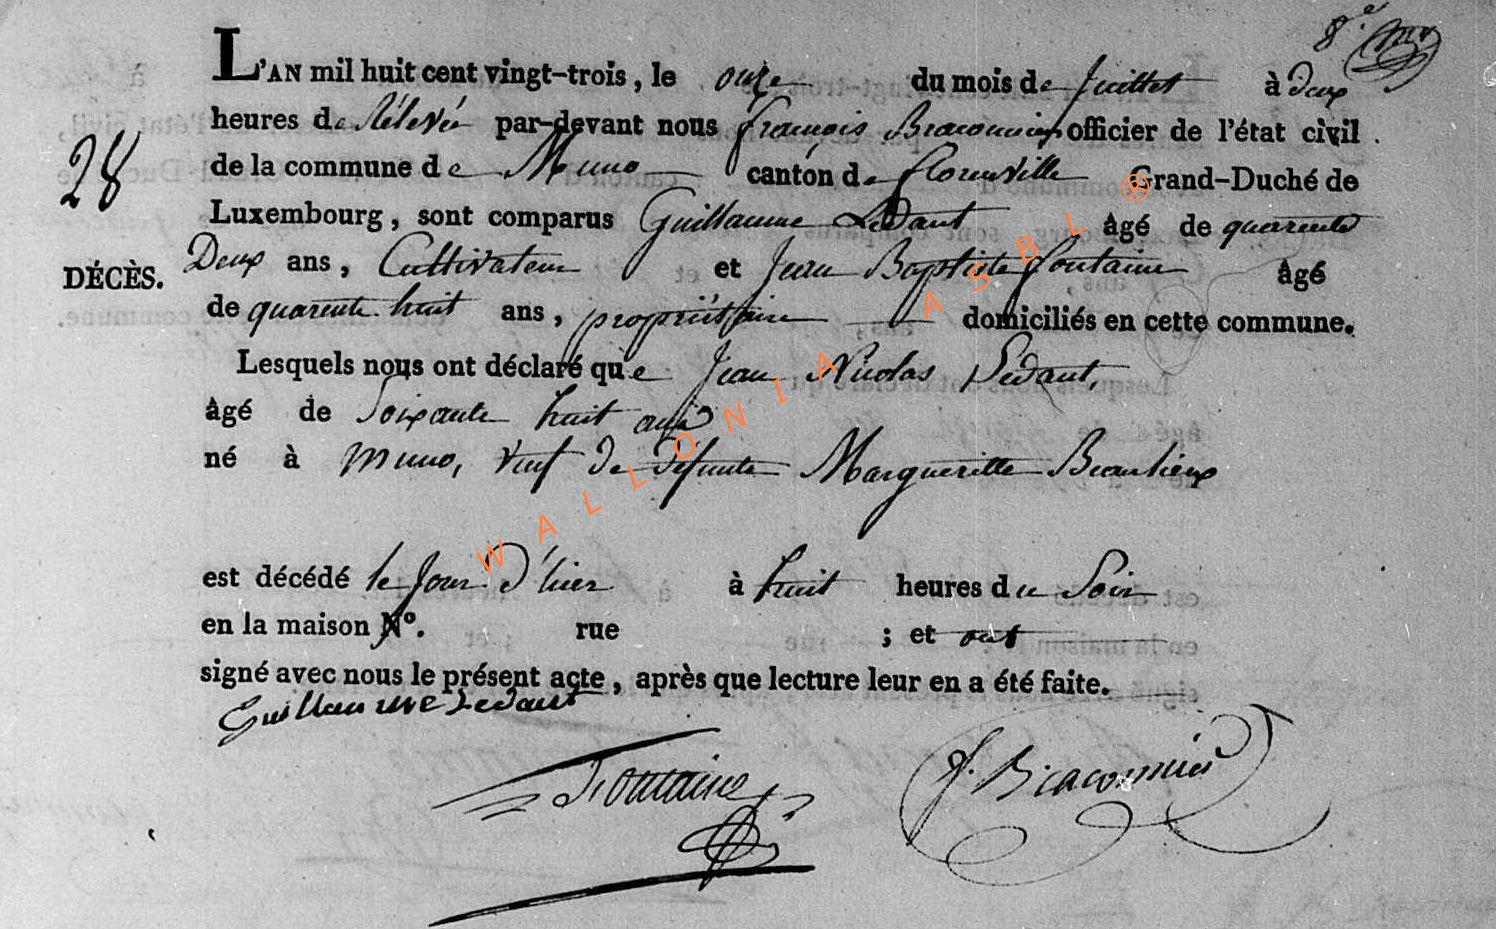 8.e
L'AN mil huit cent vingt-trois, le onze du mois de Juillet à deux
heures de Rélevée par-devant nous François Braconnier officier de l'état civil
28
de la commune de Muno canton de florenville Grand-Duché de
Luxembourg, sont comparus Guillaume Ledant âgé de quarente
DÉCÈS.
Deux ans, Cultivateur et Jean Baptiste fontaine âgé
de quarente huit ans, propriétaire domiciliés en cette commune.
Lesquels nous ont déclaré que Jean Nicolas Ledant,
âgé de Soixante huit ans
né à Muno, veuf de défunte Margueritte Beaulieux
est décédé le Jour d'hier à huit heures du Soir
en la maison N°. rue ; et ont
signé avec nous le présent acte, après que lecture leur en a été faite.
Guillaume Ledant
Fontaine
f. Braconnier
WALLONIA ASBL ®